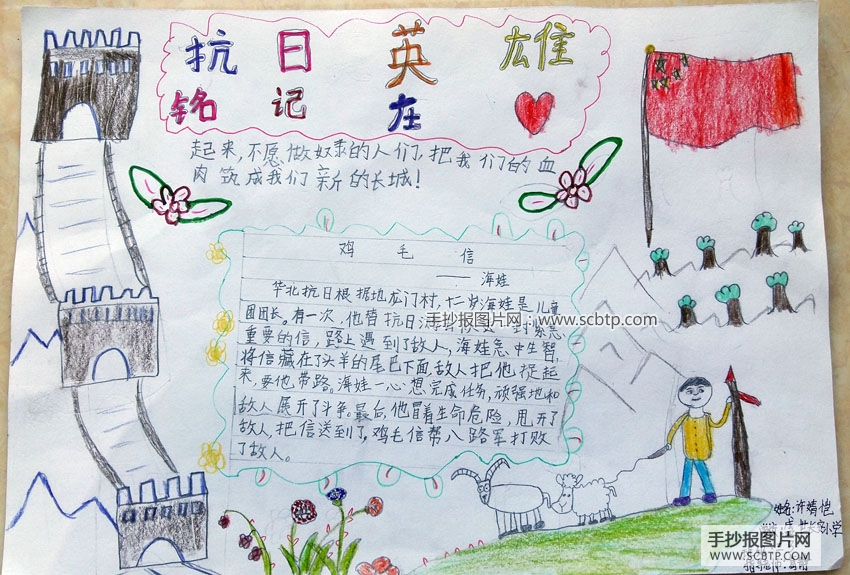 抗日英雄
铭记在
起来,不愿做奴隶的人们,把我们的血
肉筑成我们新的长城!
鸡毛信
——海娃
华北抗日根据地龙门村,十二岁海娃是儿童
团团长。有一次,他替抗日
手抄报图片网:www.scbtp.com
重要的信,路上遇到了敌人,海娃急中生智,
将信藏在了头羊的尾巴下面,敌人把他捉起
来,要他带路。海娃一心想完成任务,顽强地和
敌人展开了斗争。最后,他冒着生命危险,甩开了
敌人,把信送到了,鸡毛信帮八路军打败
了敌人。
姓名:许婧恺
小学
手抄报图片网
WWW.SCBTP.COM